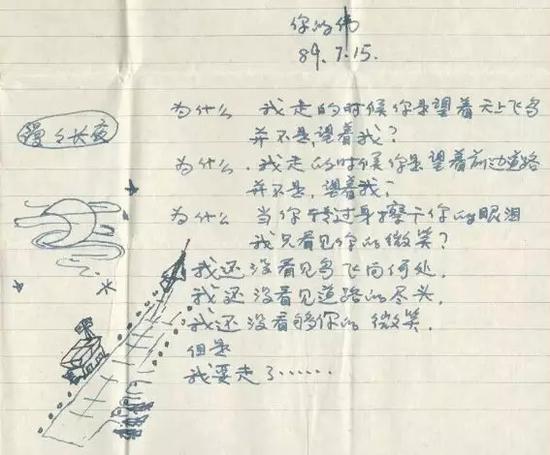 你的伟
89.7.15.
漫々长夜
为什么 我走的时候你是望着天上飞鸟
并不是,望着我?
为什么.我走的时候你是望着前边道路
并不是,望着我?
为什么 当你转过身擦下你的眼泪
我只看见你的微笑?
我还没看见鸟飞向何处.
我还没看见道路的尽头.
我还没看够你的微笑.
但是
我要走了······